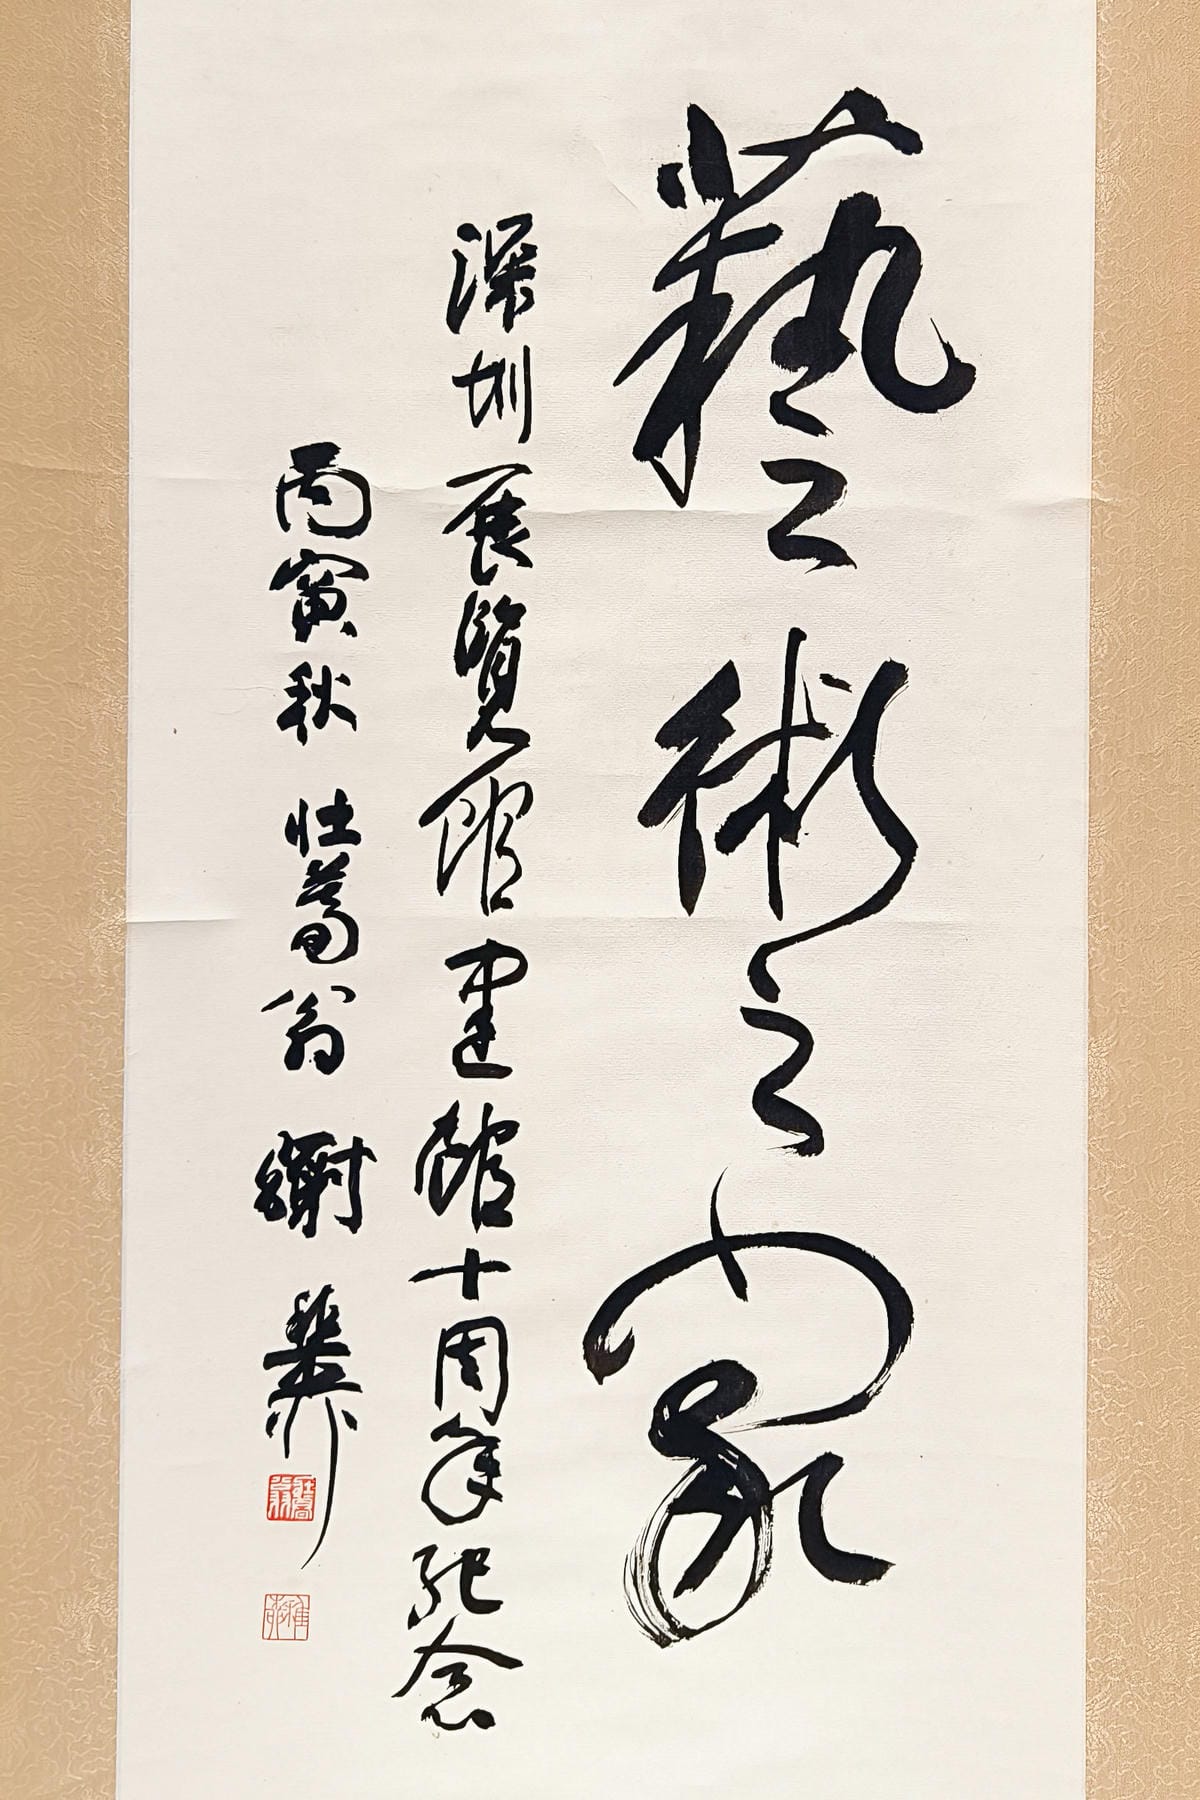 藝術之家
深圳展覽館建館十周年紀念
丙寅秋 壯暮翁